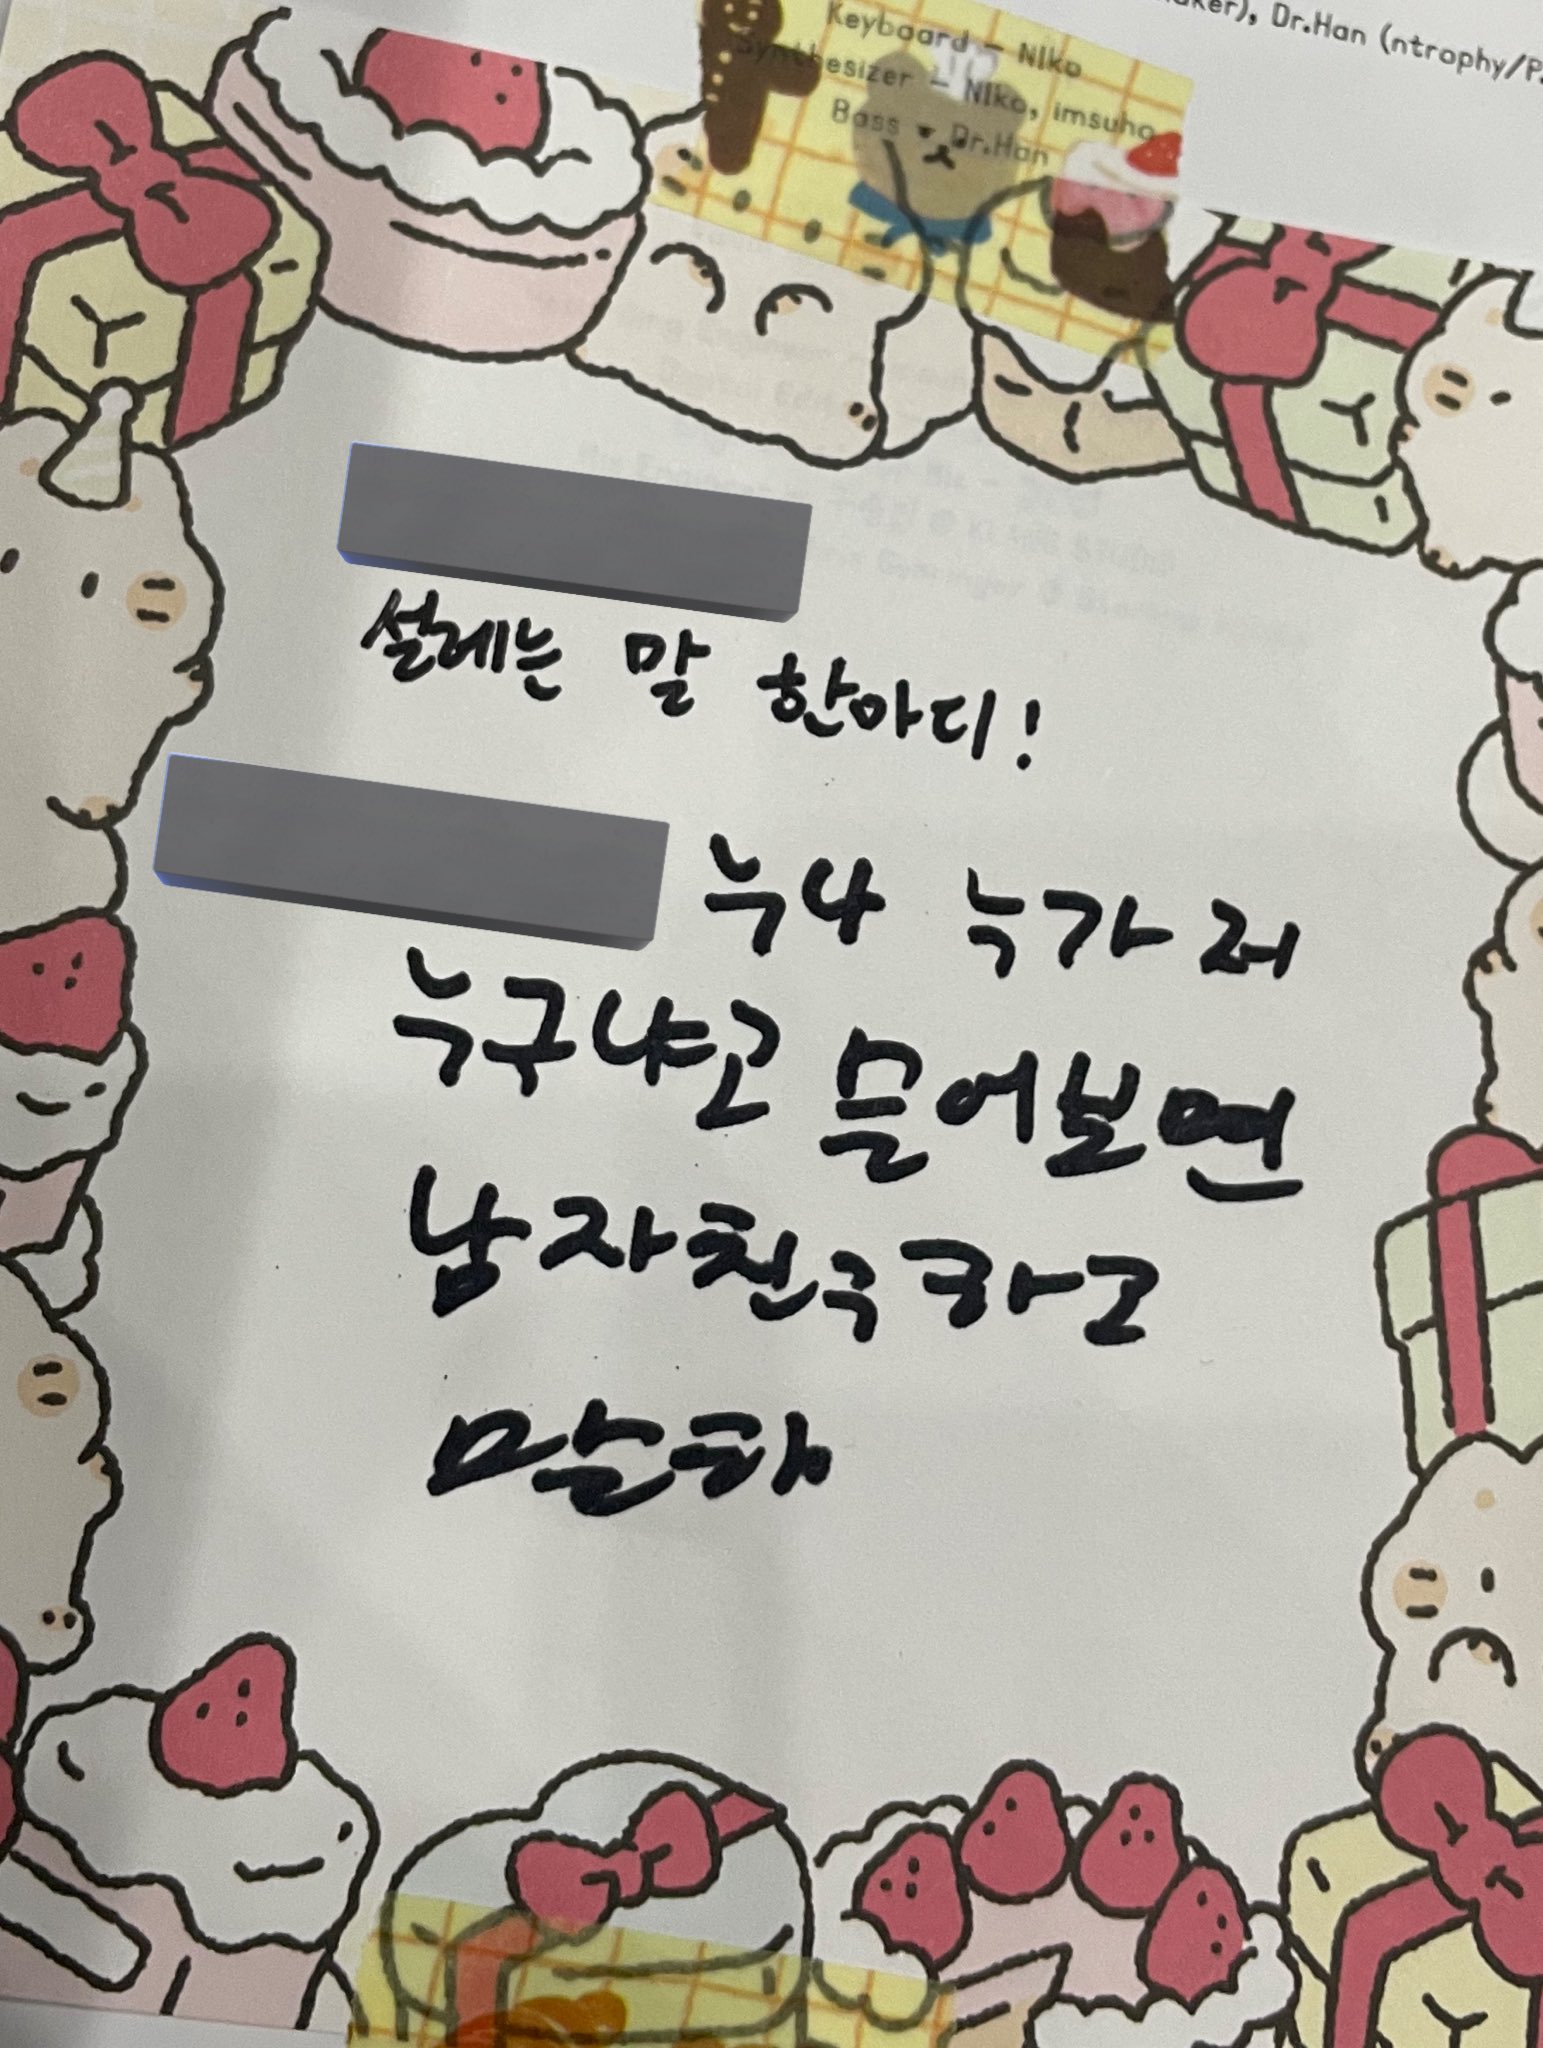 ker), Dr.Han (ntrophy/P
Keyboard – NIko
Synthesizer – NIko, imsuho
Bass – Dr.Han
설레는 말 한마디!
누나 누가 저
누구냐고 물어보면
남자친구라고
말해